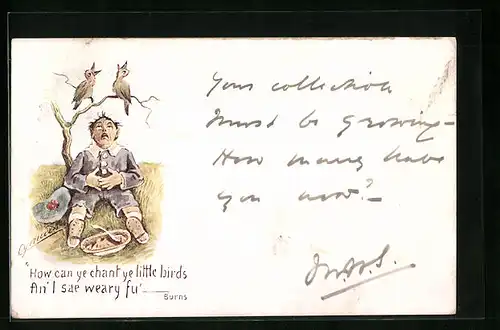 Your collection
must be growing —
How many have
you now? —
"How can ye chant ye little birds
An' I sae weary fu'—
Burns